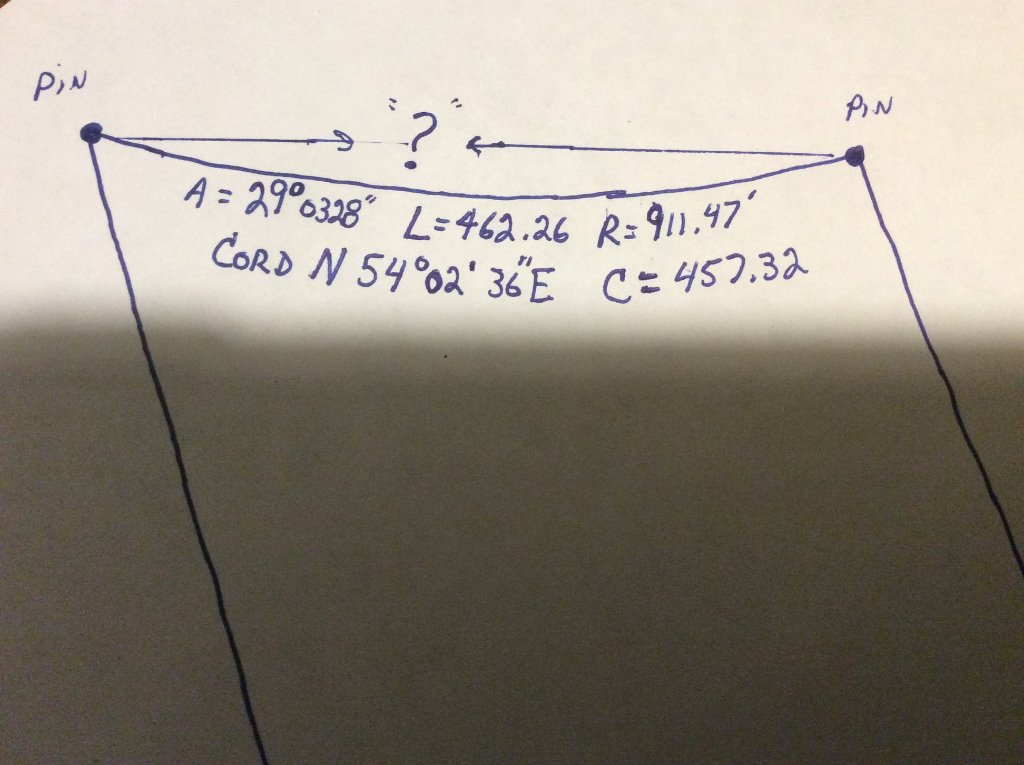 PIN
" ? "
PIN
A = 29°0328" L=462.26 R=911.47'
CORD N 54°02'36"E C=457.32